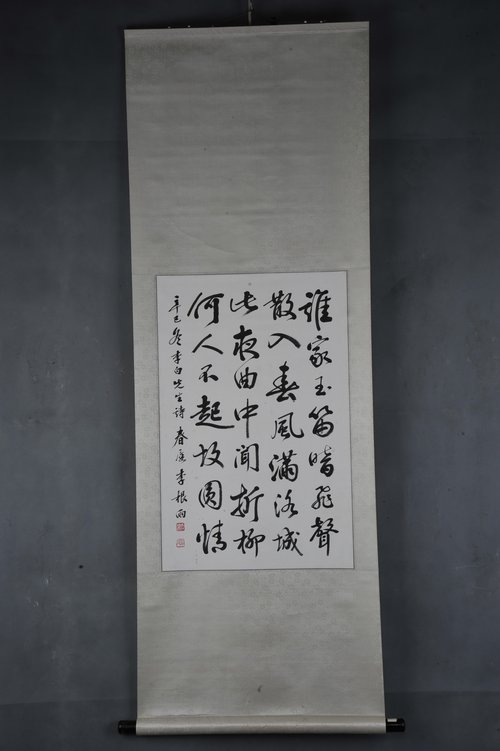 誰家玉笛暗飛聲
散入春風滿洛城
此夜曲中聞折柳
何人不起故園情
辛巳冬李白先生詩春李根雨